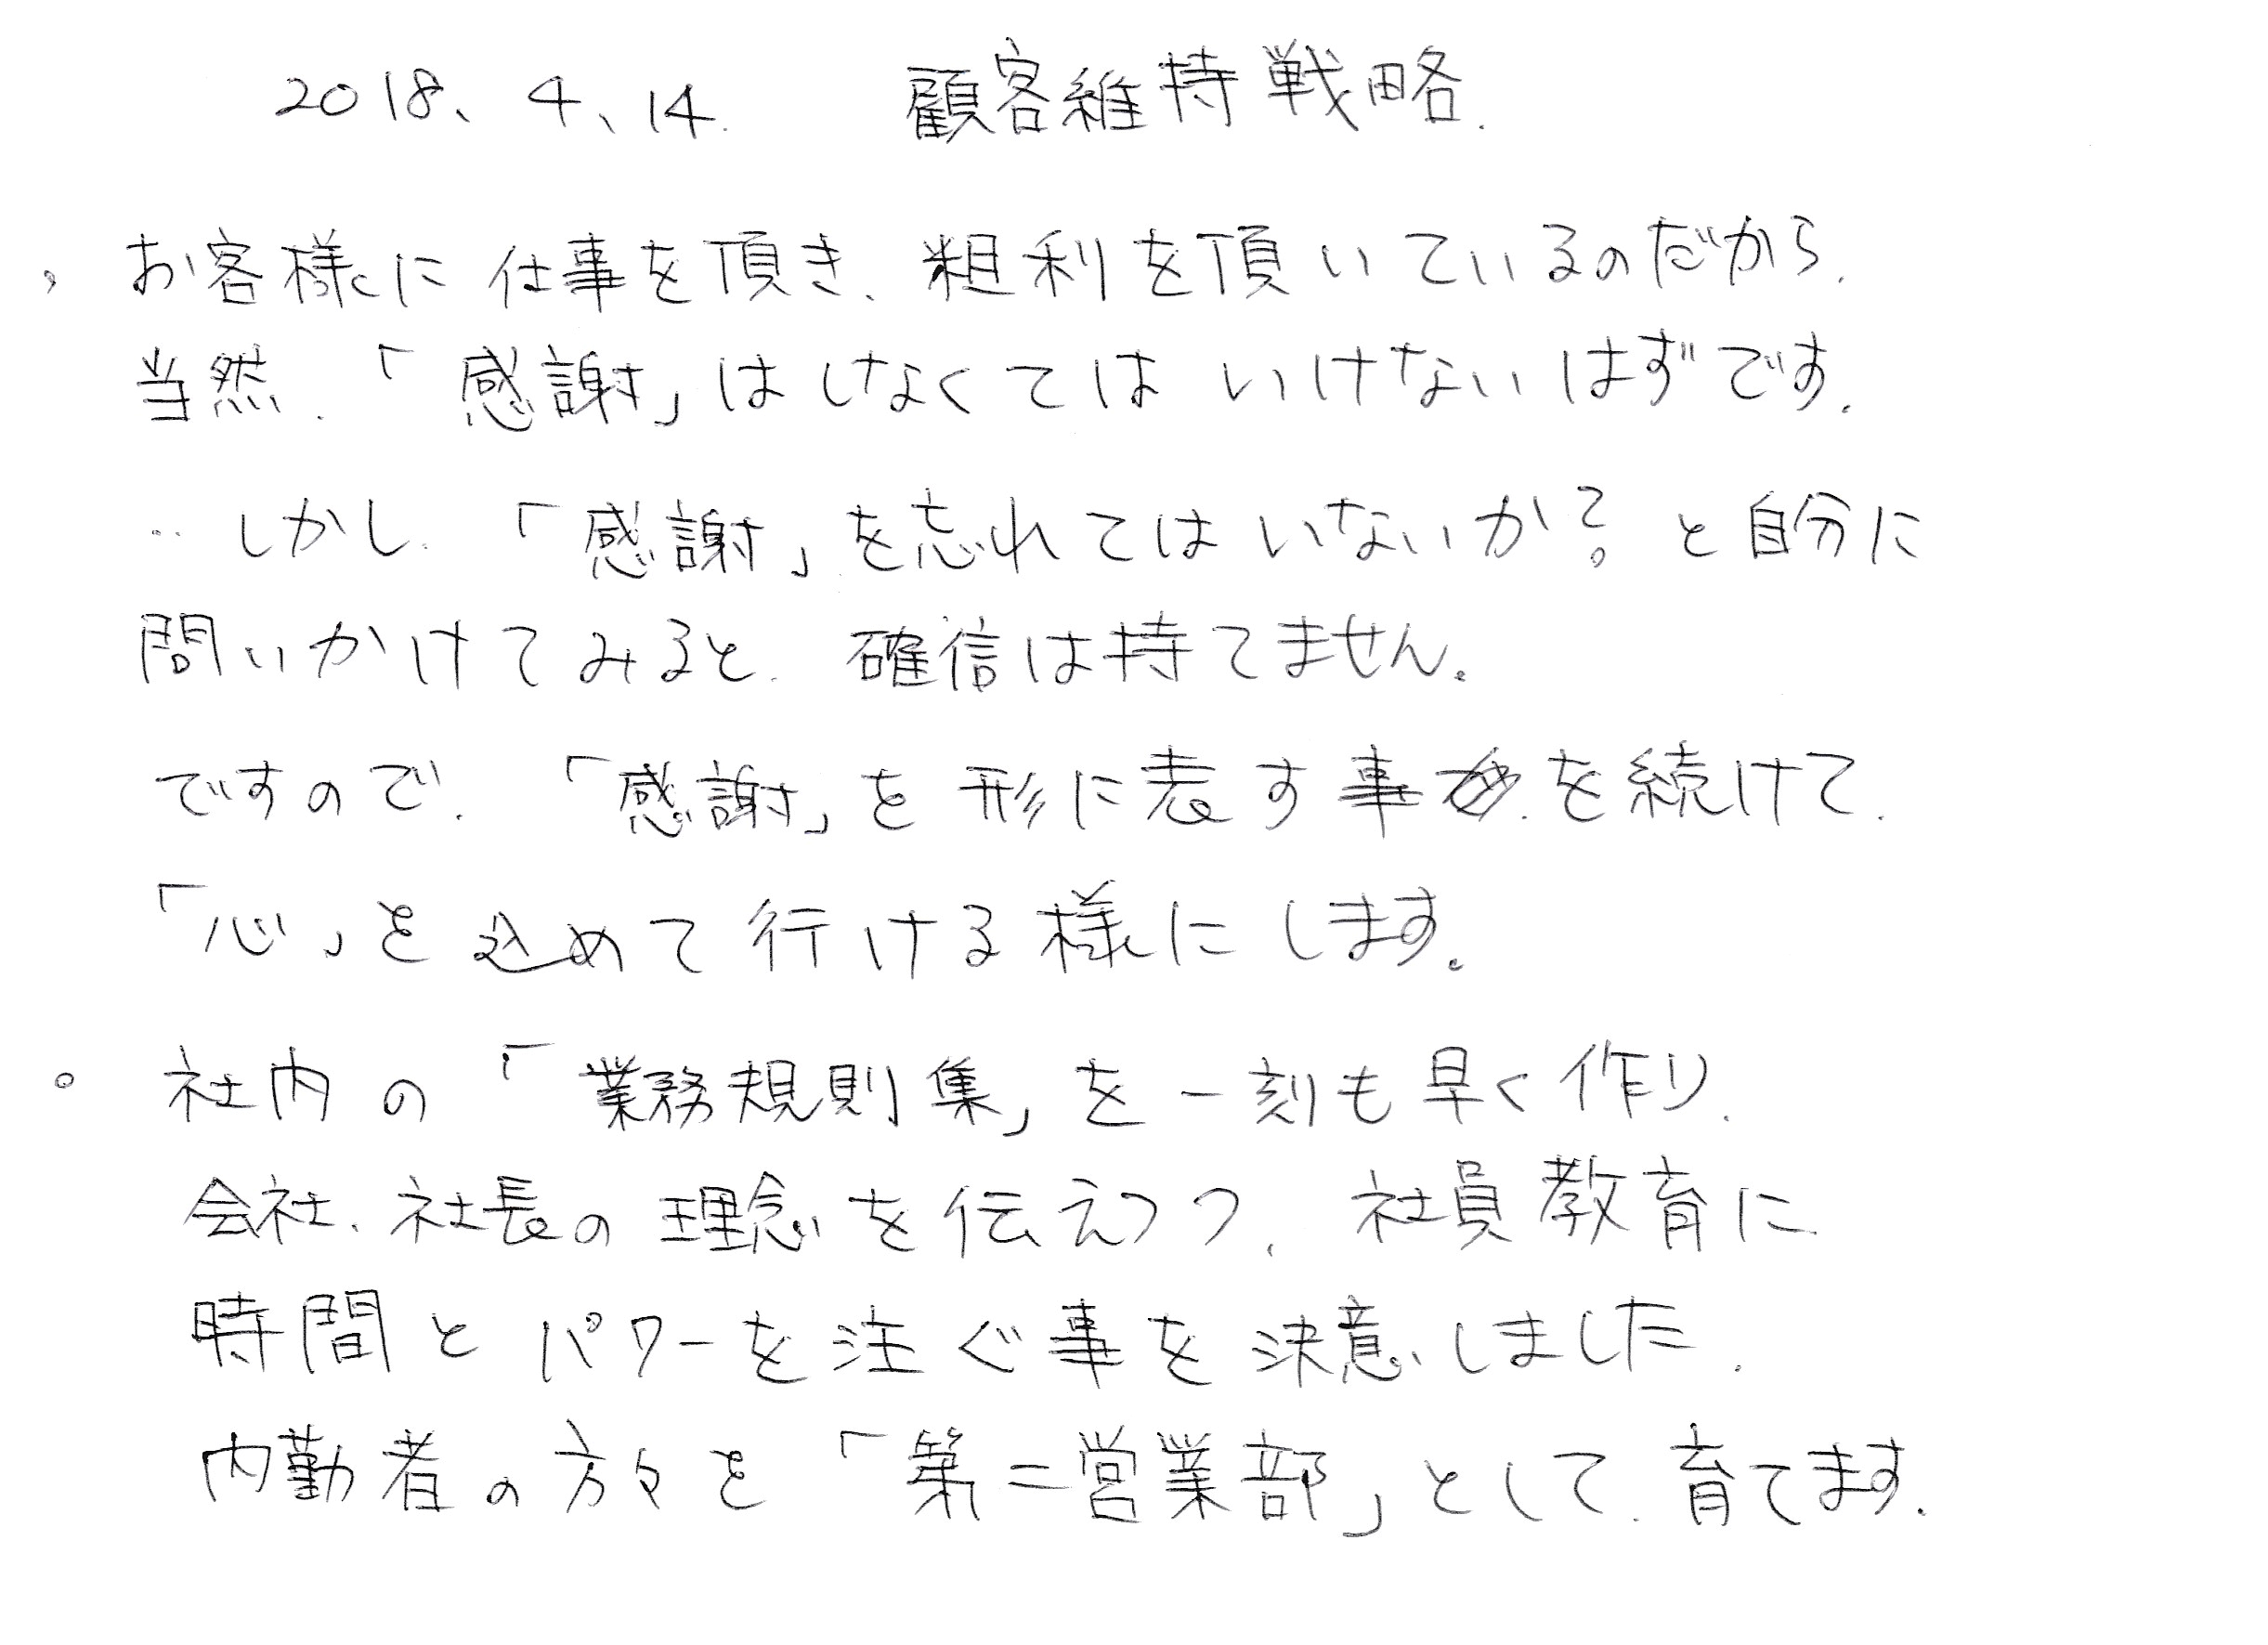 2018、4、14. 顧客維持戦略.
、お客様に仕事を頂き、粗利を頂いているのだから、
当然、「感謝」はしなくてはいけないはずです。
‥しかし、「感謝」を忘れてはいないか？と自分に
問いかけてみると、確信は持てません。
ですので、「感謝」を形に表す事を続けて、
「心」を込めて行ける様にします。
○ 社内の「業務規則集」を一刻も早く作り、
会社、社長の理念を伝えつつ、社員教育に
時間とパワーを注ぐ事を決意しました。
内勤者の方々を「第二営業部」として、育てます。